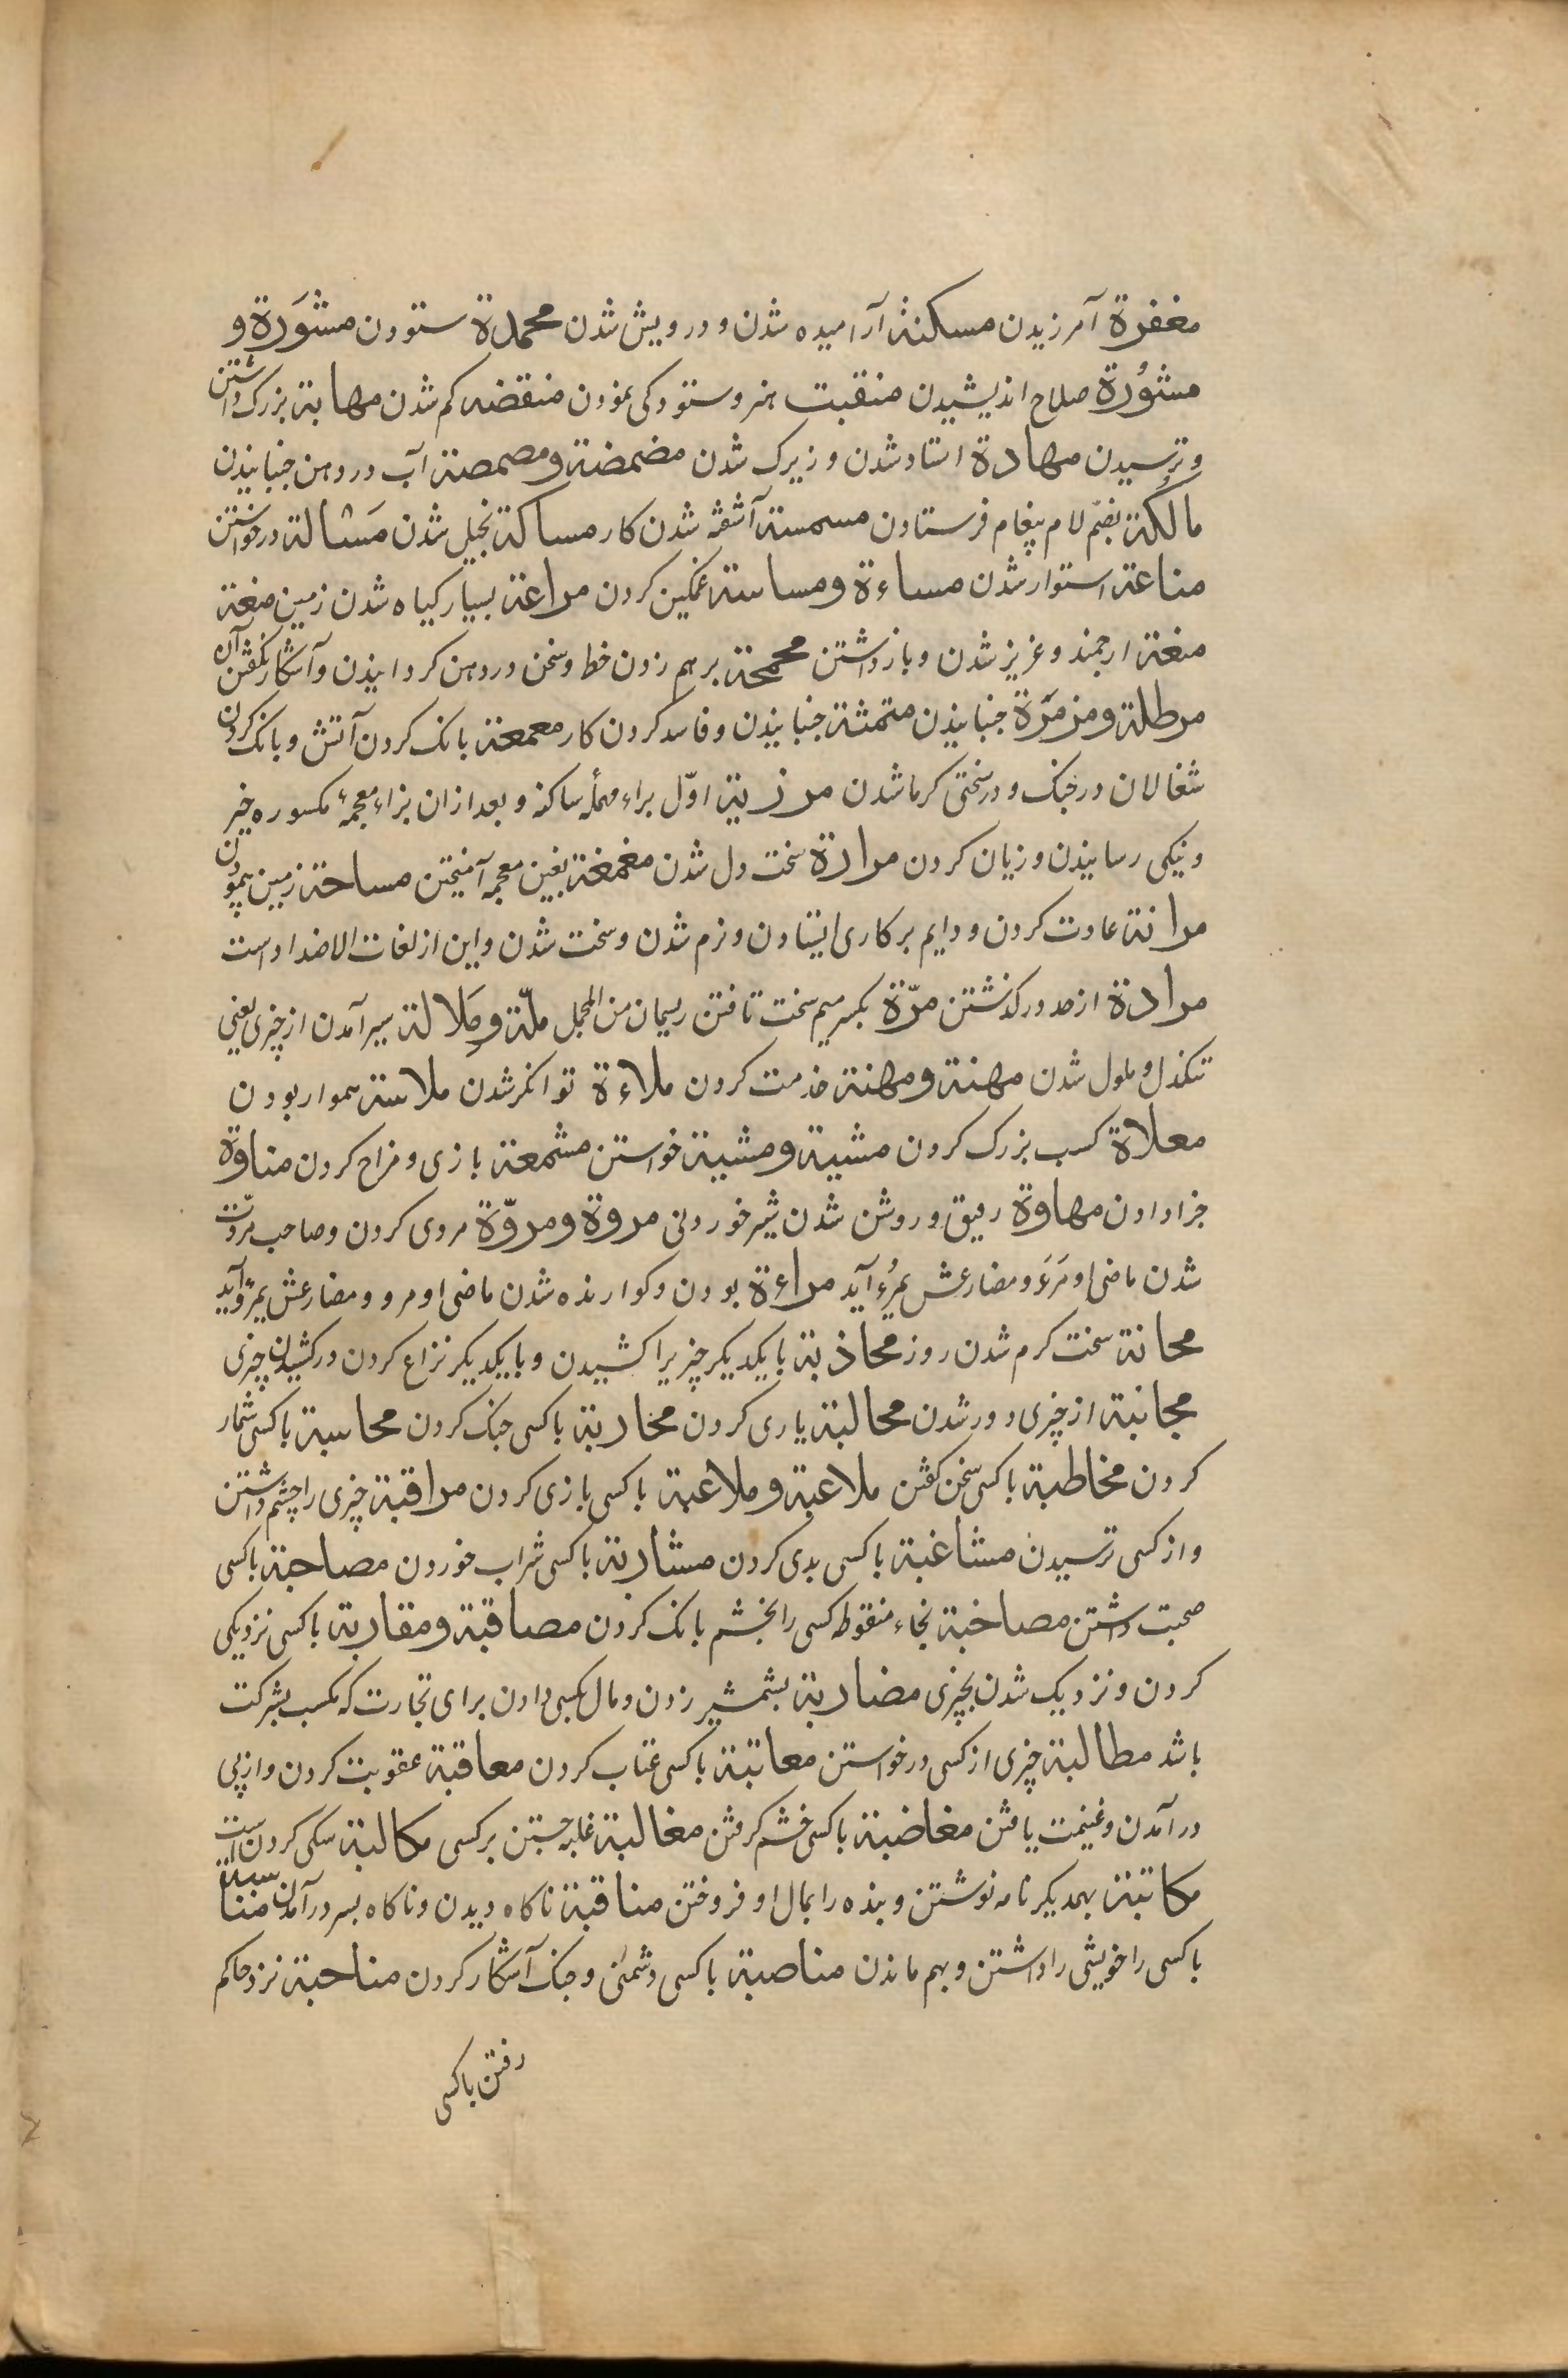 مغفرة آمرزیدن مسکنة آرامیده شدن و درویش شدن محمدة ستودن مشوَرة و
مشوُرة صلاح اندیشیدن منقبت هنر و ستودکی نمودن منقضه کم شدن مهابة بزرک داشتن
و ترسیدن مهارة استاد شدن و زیرک شدن مضمضة و مصمصة آب در دهن جنبانیدن
مالکة بضمّ لام پیغام فرستادن مسمسة آشفته شدن کار مساکة بخیل شدن مَسْالة درخواستن
مناعة استوار شدن مساءة و مسائة غمکین کردن مراعة بسیار کیاه شدن زمین منعة
منعة ارجمند و عزیز شدن و بازداشتن محمحة برهم زدن خط و سخن در دهن کردانیدن و آشکار نکفتن آن
مرطلة و مزمزة جنبانیدن متمثة جنبانیدن و فاسد کردن کار معمعة بانک کردن آتش و بانک کردن
شغالان در جنک و در سختی کرما شدن مرزیة اوّل براء مهملهٔ ساکنه و بعد از ان بزاء معجمهٔ مکسوره خیر
و نیکی رسانیدن و زیان کردن مرارة سخت دل شدن مغمغة بغین معجمه آمیختن مساحة زمین پیمودن
مرانة عادت کردن و دایم بر کاری ایستادن و نرم شدن و سخت شدن و این از لغات الاضداد است
مرادة از حد در کذشتن مرّة بکسر میم سخت تافتن ریسمان من المجمل ملّة و مَلالة سیر آمدن از چیزی یعنی
تنکدل و ملول شدن مهنة و مهنة خدمت کردن ملاءة توانکر شدن ملاسة هموار بودن
معلاة کسب بزرک کردن مشیة و مشیة خواستن مشمعة بازی و مزاح کردن مناوة
جزا دادن مهاوة رقیق و روشن شدن شیر خوردنی مروة و مروّة مردی کردن و صاحب مروّت
شدن ماضی او مَرَءَ و مضارعش یمرُء آید مراءة بودن و کوارنده شدن ماضی او مرو و مضارعش یمرؤ آید
محانة سخت کرم شدن روز مجاذبة با یکدیکر چیزیرا کشیدن و با یکدیکر نزاع کردن در کشیدن چیزی
مجانبة از چیزی دور شدن محالبة یاری کردن محاربة با کسی جنک کردن محاسبة با کسی شمار
کردن مخاطبة با کسی سخن کفتن ملاعبة و ملاعبة با کسی بازی کردن مراقبة چیزی را چشم داشتن
و از کسی ترسیدن مشاغبة با کسی بدی کردن مشاربة با کسی شراب خوردن مصاحبة با کسی
صحبت داشتن مصاخبة بخاء منقوطه کسی را بخشم بانک کردن مصاقبة و مقاربة با کسی نزدیکی
کردن و نزدیک شدن بچیزی مضاربة بشمشیر زدن و مال بکسی دادن برای تجارت که مکسب بشرکت
باشد مطالبة چیزی از کسی درخواستن معاتبة با کسی عتاب کردن معاقبة عقوبت کردن و از پی
در آمدن و غنیمت یافتن مغاضبة با کسی خشم کرفتن مغالبة غلبه جستن بر کسی مکالبة سکی کردن است
مکاتبة بهمدیکر نامه نوشتن و بنده را بمال او فروختن مناقبة ناکاه دیدن و ناکاه بسر در آمدن مناسبة
با کسی را خویشی را داشتن و بهم ماندن مناصبة با کسی دشمنی و جنک آشکار کردن مناحبة نزد حاکم
رفتن با کسی